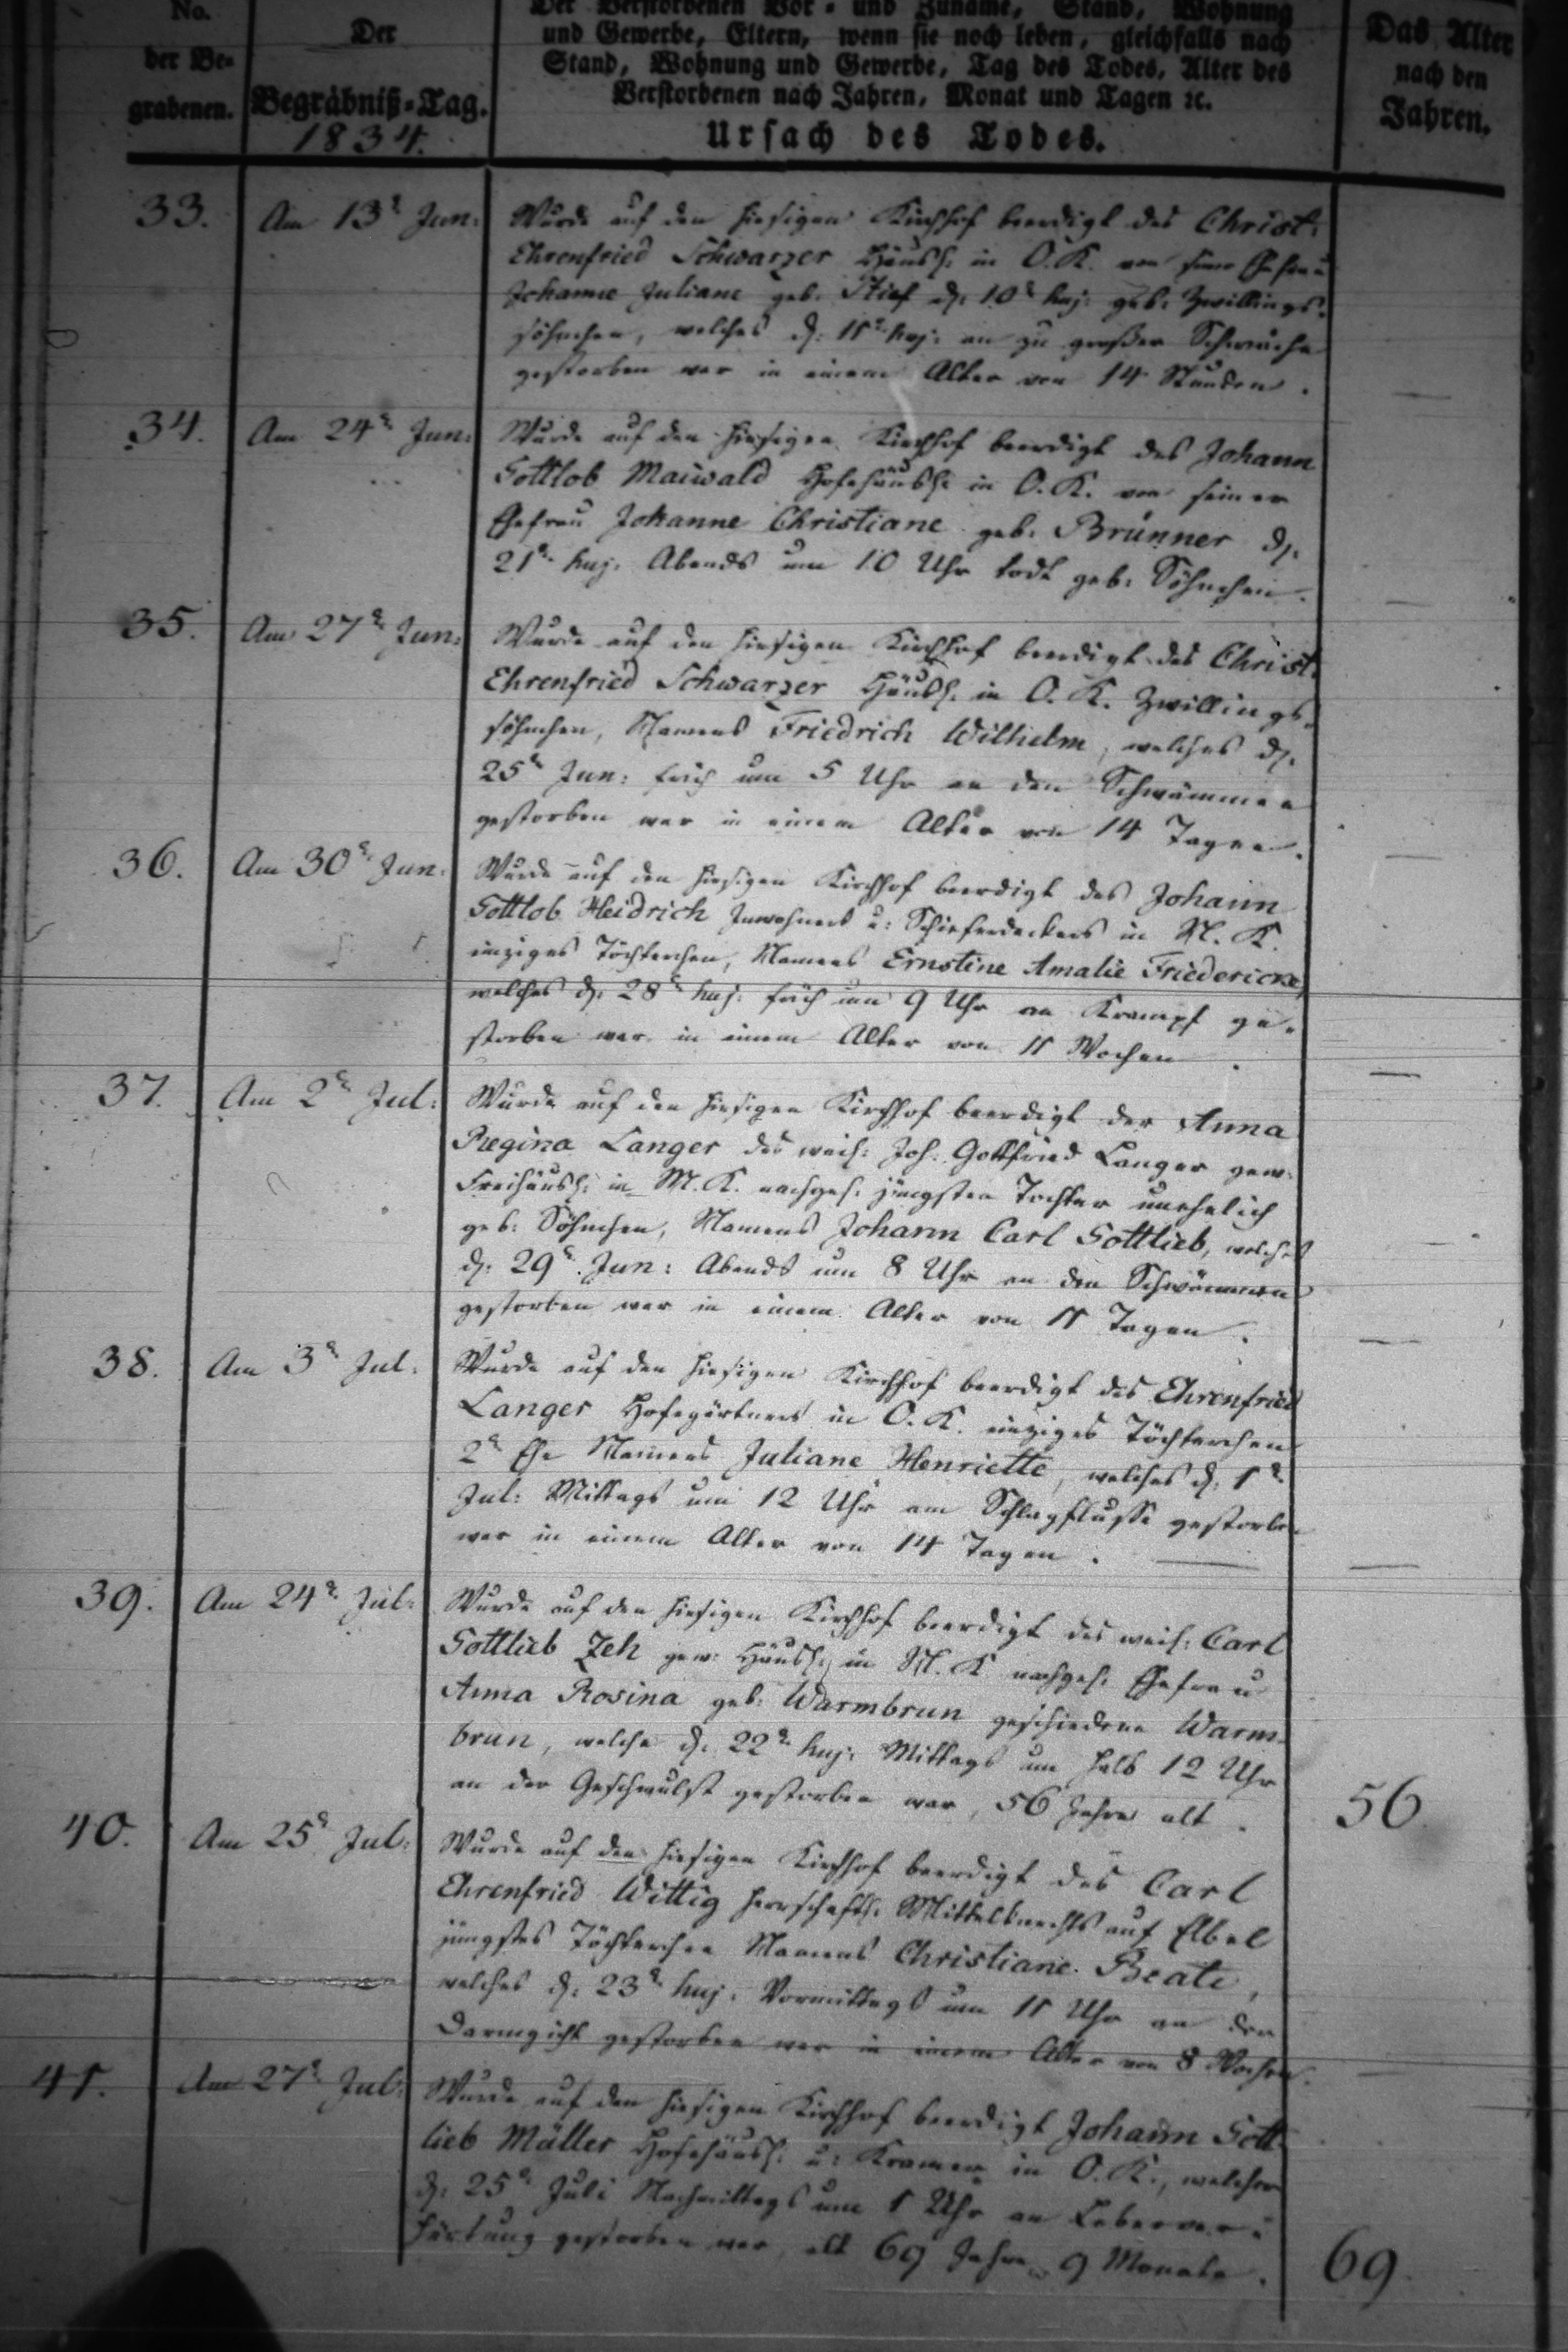 No.
der Be=
grabenen.
Der
Begräbniß=Tag.
1834.
Der Verstorbenen Vor= und Zuname, Stand, Wohnung
und Gewerbe, Eltern, wenn sie noch leben, gleichfalls nach
Stand, Wohnung und Gewerbe, Tag des Todes, Alter des
Verstorbenen nach Jahren, Monat und Tagen ꝛc.
Ursach des Todes.
Das Alter
nach den
Jahren.
33. Am 13t Jun:
Wurde auf den hiesigen Kirchhof beerdigt des Christ:
Ehrenfried Schwarzer Häusl: in O. K. von seiner Ehefrau
Johanne Juliane geb: Stief d: 10t huj: geb: Zwillings=
söhnchen, welches d: 11t huj: an zu großer Schwäche
gestorben war in einem Alter von 14 Stunden.
34. Am 24t Jun:
Wurde auf den hiesigen Kirchhof beerdigt des Johann
Gottlob Maiwald Hofehäusl: in O. K. von seiner
Ehefrau Johanne Christiane geb: Brunner d:
21t huj: Abends um 10 Uhr todt geb: Söhnchen.
35. Am 27t Jun:
Wurde auf den hiesigen Kirchhof beerdigt des Christ:
Ehrenfried Schwarzer Häusl: in O. K. Zwillings=
söhnchen, Namens Friedrich Wilhelm, welches d:
25t Jun: früh um 5 Uhr an den Schwämmen
gestorben war in einem Alter von 14 Tagen.
36. Am 30t Jun:
Wurde auf den hiesigen Kirchhof beerdigt des Johann
Gottlob Heidrich Inwohners u: Schieferdeckers in N. K.
einziges Töchterchen, Namens Ernstine Amalie Friedericke,
welches d: 28t huj: früh um 9 Uhr an Krampf ge=
storben war in einem Alter von 11 Wochen.
37. Am 2t Jul:
Wurde auf den hiesigen Kirchhof beerdigt der Anna
Regina Langer des weil: Joh: Gottfried Langer gew:
Freihäusl: in M. K. nachgel: jüngsten Tochter unehelich
geb: Söhnchen, Namens Johann Carl Gottlieb, welches
d: 29t Jun: Abends um 8 Uhr an den Schwämmen
gestorben war in einem Alter von 11 Tagen.
38. Am 3t Jul:
Wurde auf den hiesigen Kirchhof beerdigt des Ehrenfried
Langer Hofegärtners in O. K. einziges Töchterchen
2t Ehe Namens Juliane Henriette, welches d: 1t
Jul: Mittags um 12 Uhr am Schlagflusse gestorben
war in einem Alter von 14 Tagen.
39. Am 24t Jul:
Wurde auf den hiesigen Kirchhof beerdigt des weil: Carl
Gottlieb Zeh gew: Häusl: in N. K. nachgel: Ehefrau
Anna Rosina geb: Warmbrun geschiedene Warm=
brun, welche d: 22t huj: Mittags um halb 12 Uhr
an der Geschwulst gestorben war, 56 Jahre alt.
56
40. Am 25t Jul:
Wurde auf den hiesigen Kirchhof beerdigt des Carl
Ehrenfried Wittig herrschaftl: Mittelknechts auf Elbel
jüngstes Töchterchen Namens Christiane Beate,
welches d: 23t huj: Vormittags um 11 Uhr an der
Darmgicht gestorben war in einem Alter von 8 Wochen.
41. Am 27t Jul:
Wurde auf den hiesigen Kirchhof beerdigt Johann Gott=
lieb Müller Hofehäusl: u: Kramer in O. K., welcher
d: 25t Juli Nachmittags um 1 Uhr an Leberver=
härtung gestorben war, alt 69 Jahre 9 Monate.
69.